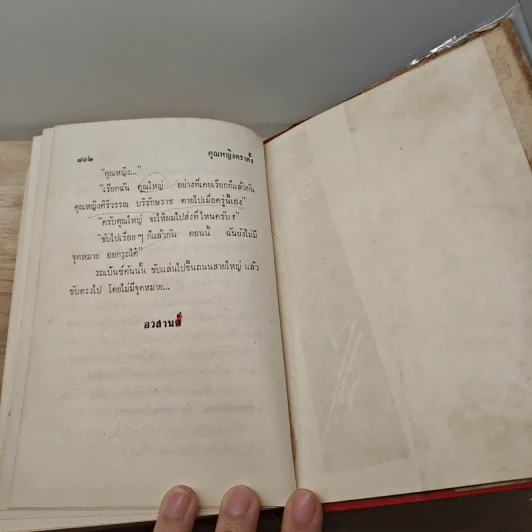 ๘๐๒ คุณหญิงตราตั้ง
"คุณหญิง..."
"เรียกฉัน คุณใหญ่ อย่างที่เคยเรียกก็แล้วกัน
คุณหญิงศิริวรรณ บริรักษราช ตายไปเมื่อครู่นี้เอง"
"ครับคุณใหญ่ จะให้ผมไปส่งที่ไหนครับ?"
"ขับไปเรื่อย ๆ ก็แล้วกัน ตอนนี้ ฉันยังไม่มี
จุดหมาย ออกรถได้"
รถเบ๊นซ์คันนั้น ขับแล่นไปขึ้นถนนสายใหญ่ แล้ว
ขับตรงไป โดยไม่มีจุดหมาย...
อวสาน